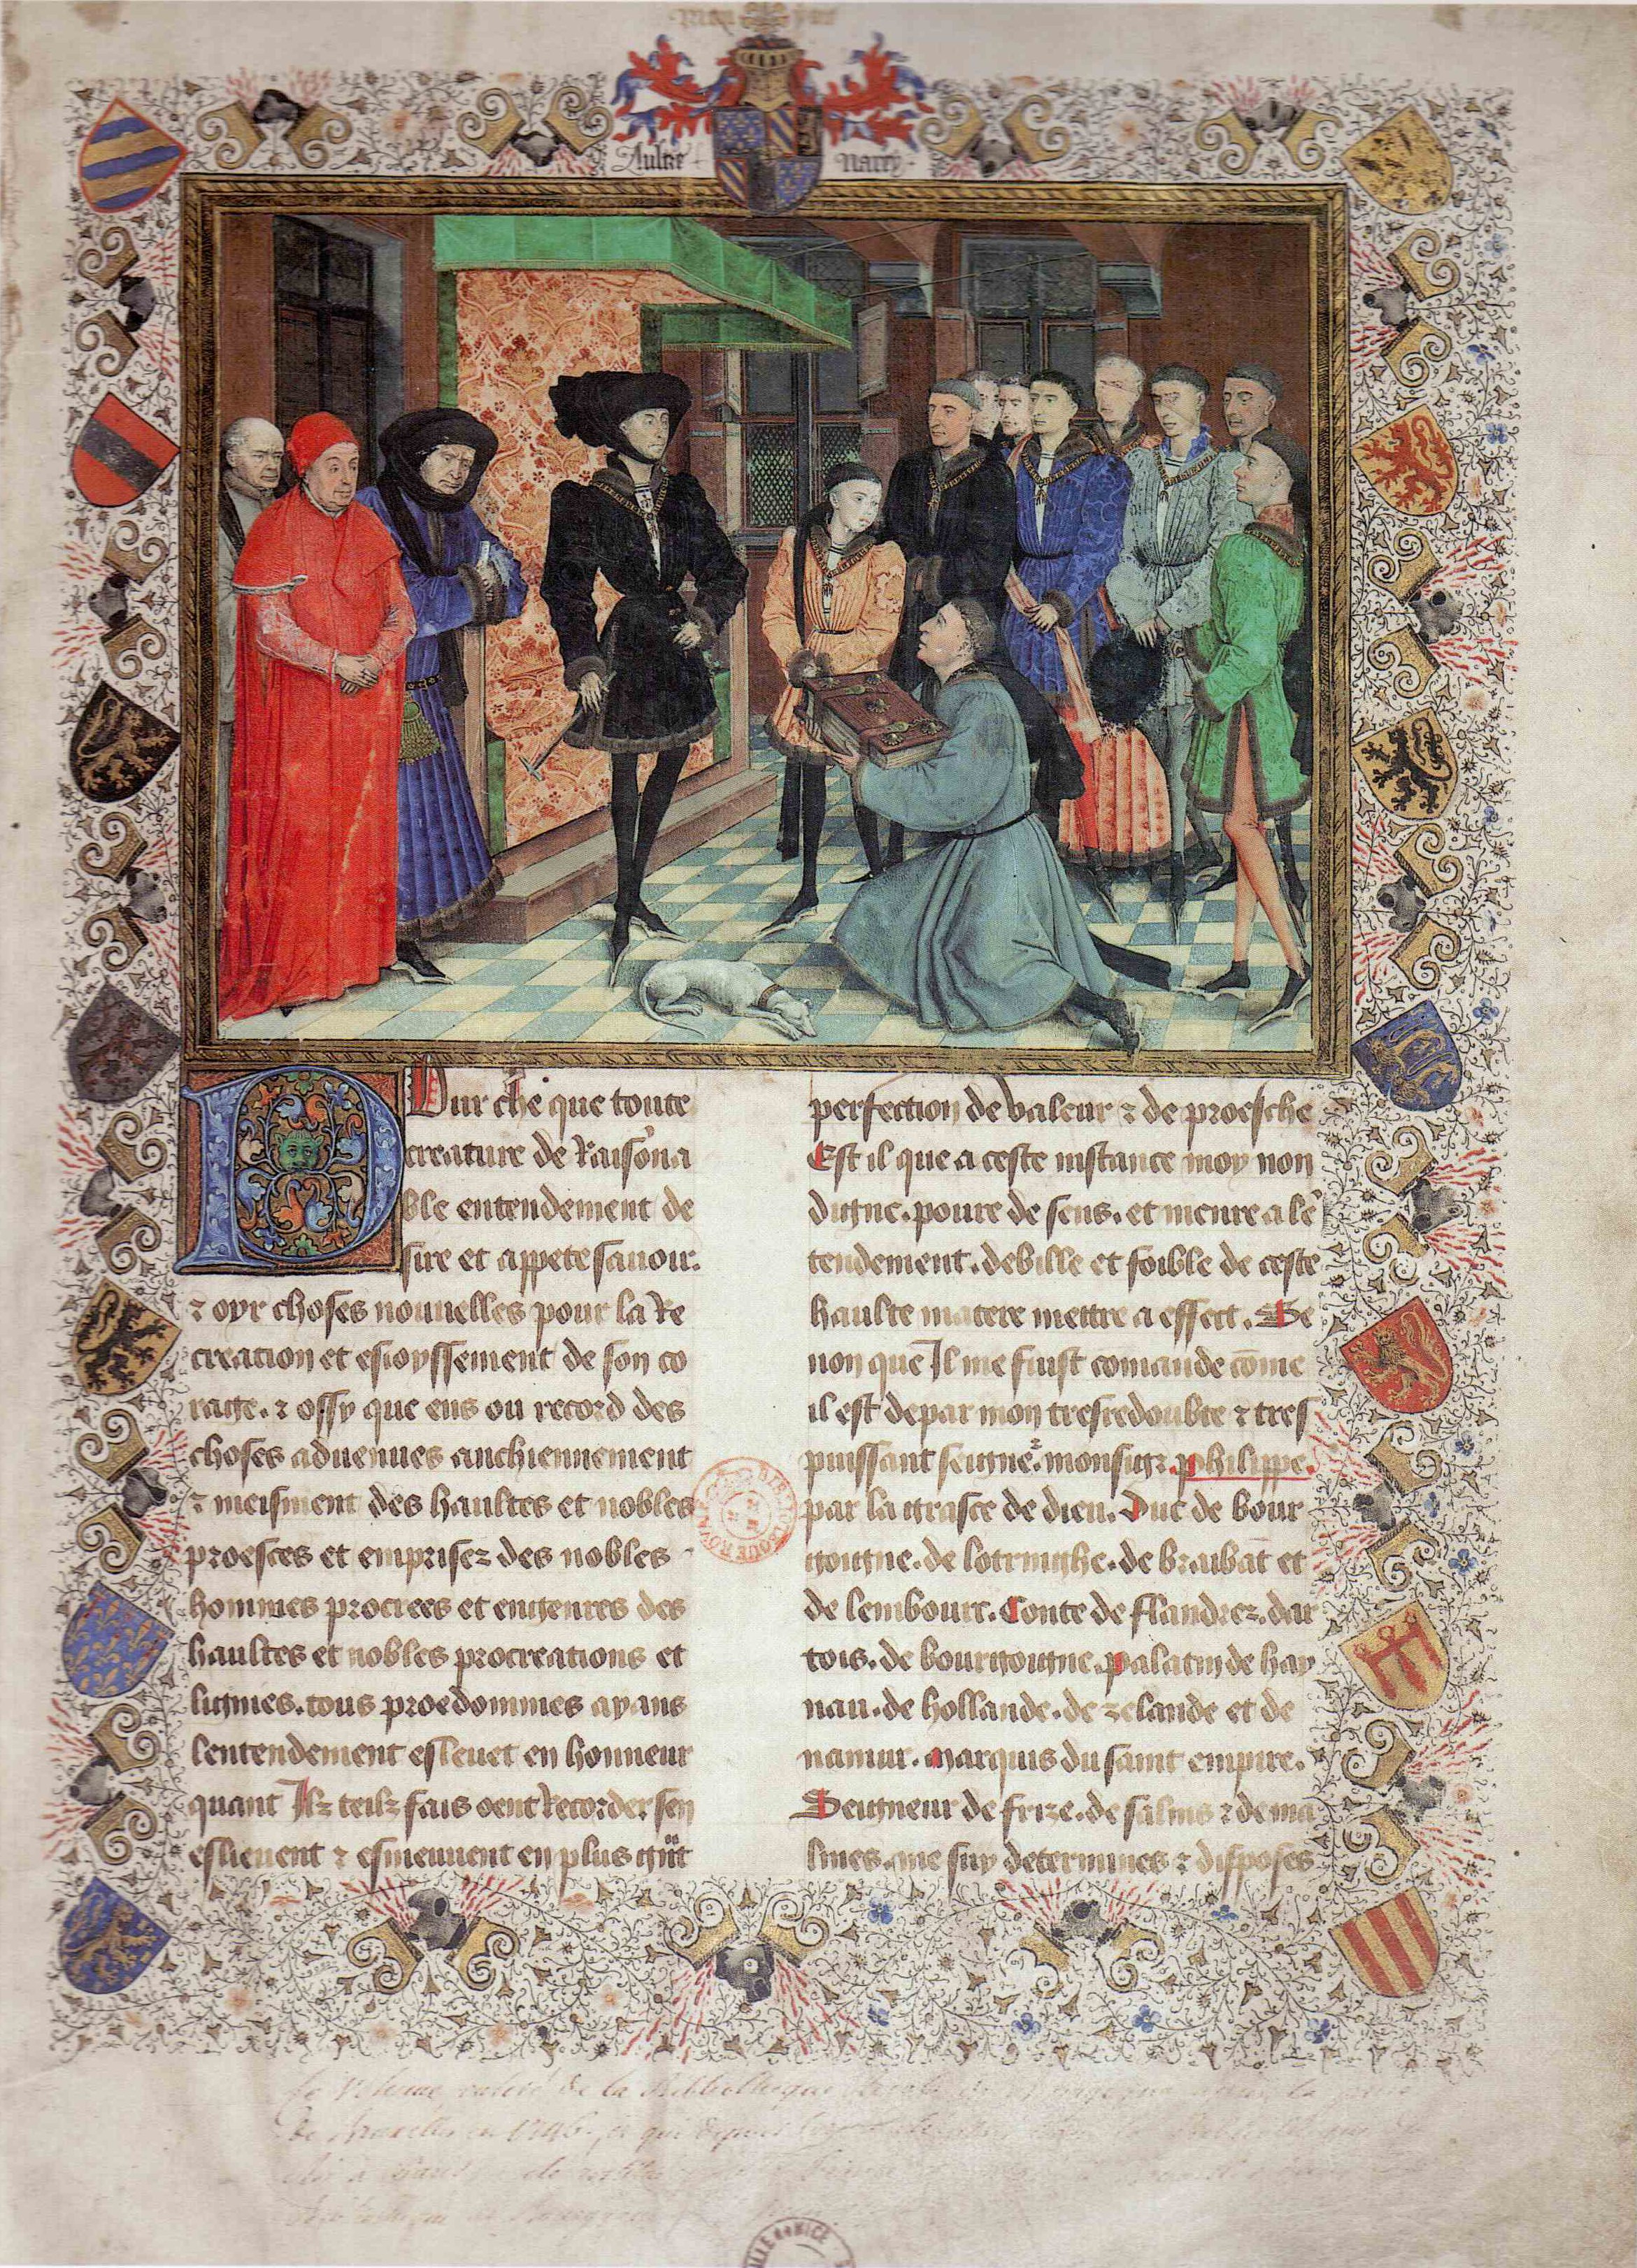 Aultre Narey
Pour che que toute
creature de Raisona
ble entendement de
sire et appete sauoir.
⁊ oyr choses nouuelles pour la Re
creation et esioyssement de son co
rage. ⁊ ossy que ens ou record des
choses aduenues anchiennement
⁊ meisment des haultes et nobles
proesces et emprisez des nobles
hommes procrees et engenres des
haultes et nobles procreations et
lignies. tous proedommes ayans
lentendement esleuet en honneur
quant Ilz teilz fais oent Recorder sen
eslieuent ⁊ esmeuuent en plus gñt
perfection de valeur ⁊ de proesche
Est il que a ceste instance moy non
digne. poure de sens. et menre alẽ
tendement. debille et foible de ceste
haulte matere mettre a effect. Se
non que Il me fuist comande cõme
il est depar mon tresredoubte ⁊ tres
puissant seigne². monsigr philippe.
par la grasce de dieu. Duc de bour
gongne. de lotringhe. de braibãt et
de lembourc. Conte de flandrez. dar
tois. de bourgongne. palatin de hay
nau. de hollande. de zelande et de
namur. Marquis du saint empire.
Seigneur de frize. de salins ⁊ de ma
lines. me suy determines ⁊ disposes
de la Bibliotheque